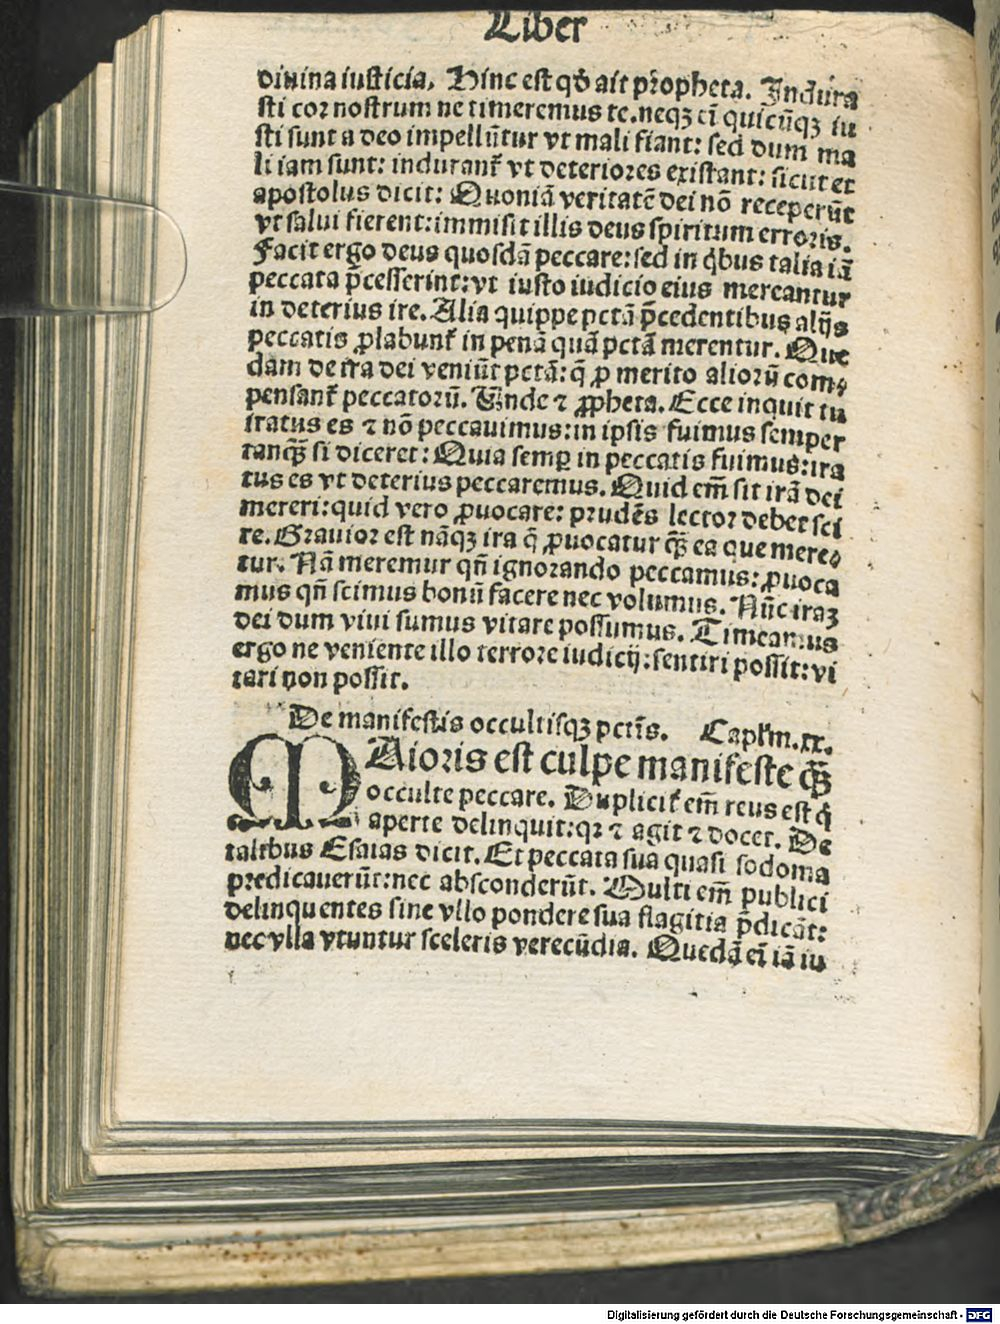 Liber
diuina iusticia, Hinc est qđ ait ꝓpheta. Indura
sti cor nostrum ne timeremus te. neqꝫ em̄ quicūqꝫ iu
sti sunt a deo impellūtur vt mali fiant: sed dum ma
li iam sunt: indurant᷑ vt deteriores existant: sicut et
apostolus dicit: Quoniā veritatē dei nō receperūt
vt salui fierent: immisit illis deus spiritum erroris.
Facit ergo deus quosdā peccare: sed in q̇bus talia iā
peccata p̄cesserint: vt iusto iudicio eius mereantur
in deterius ire. Alia quippe pctā p̄cedentibus alijs
peccatis ꝓlabunt᷑ in penā quā pctā merentur. Que
dam de ira dei veniūt pctā: q̄ ꝓ merito aliorū com⸗
pensant᷑ peccatorū. Unde ⁊ ꝓpheta. Ecce inquit tu
iratus es ⁊ nō peccauimus: in ipsis fuimus semper
tanqꝫ̄ si diceret: Quia semꝑ in peccatis fuimus: ira
tus es vt deterius peccaremus. Quid em̄ sit irā dei
mereri: quid vero ꝓuocare: prudēs lector debet sci
re. Grauior est nāqꝫ ira q̄ ꝓuocatur qꝫ̄ ea que mere⸗
tur. Nā meremur qn̄ ignorando peccamus: ꝓuoca
mus qn̄ scimus bonū facere nec volumus. Nūc iraꝫ
dei dum viui sumus vitare possumus. Timeamus
ergo ne veniente illo terrore iudicij: sentiri possit: vi
tari non possit.
De manifestis occultisqꝫ pctīs. Capl᷑m. xx.
MAioris est culpe manifeste qꝫ̄
occulte peccare. Duplicit᷑ em̄ reus est q̇
aperte delinquit: qꝛ ⁊ agit ⁊ docet. De
talibus Esaias dicit. Et peccata sua quasi sodoma
predicauerūt: nec absconderūt. Multi em̄ publici
delinquentes sine vllo pondere sua flagitia p̄dicāt:
nec vlla vtuntur sceleris verecūdia. Quedā em̄ iā iu
Digitalisierung gefördert durch die Deutsche Forschungsgemeinschaft - DFG